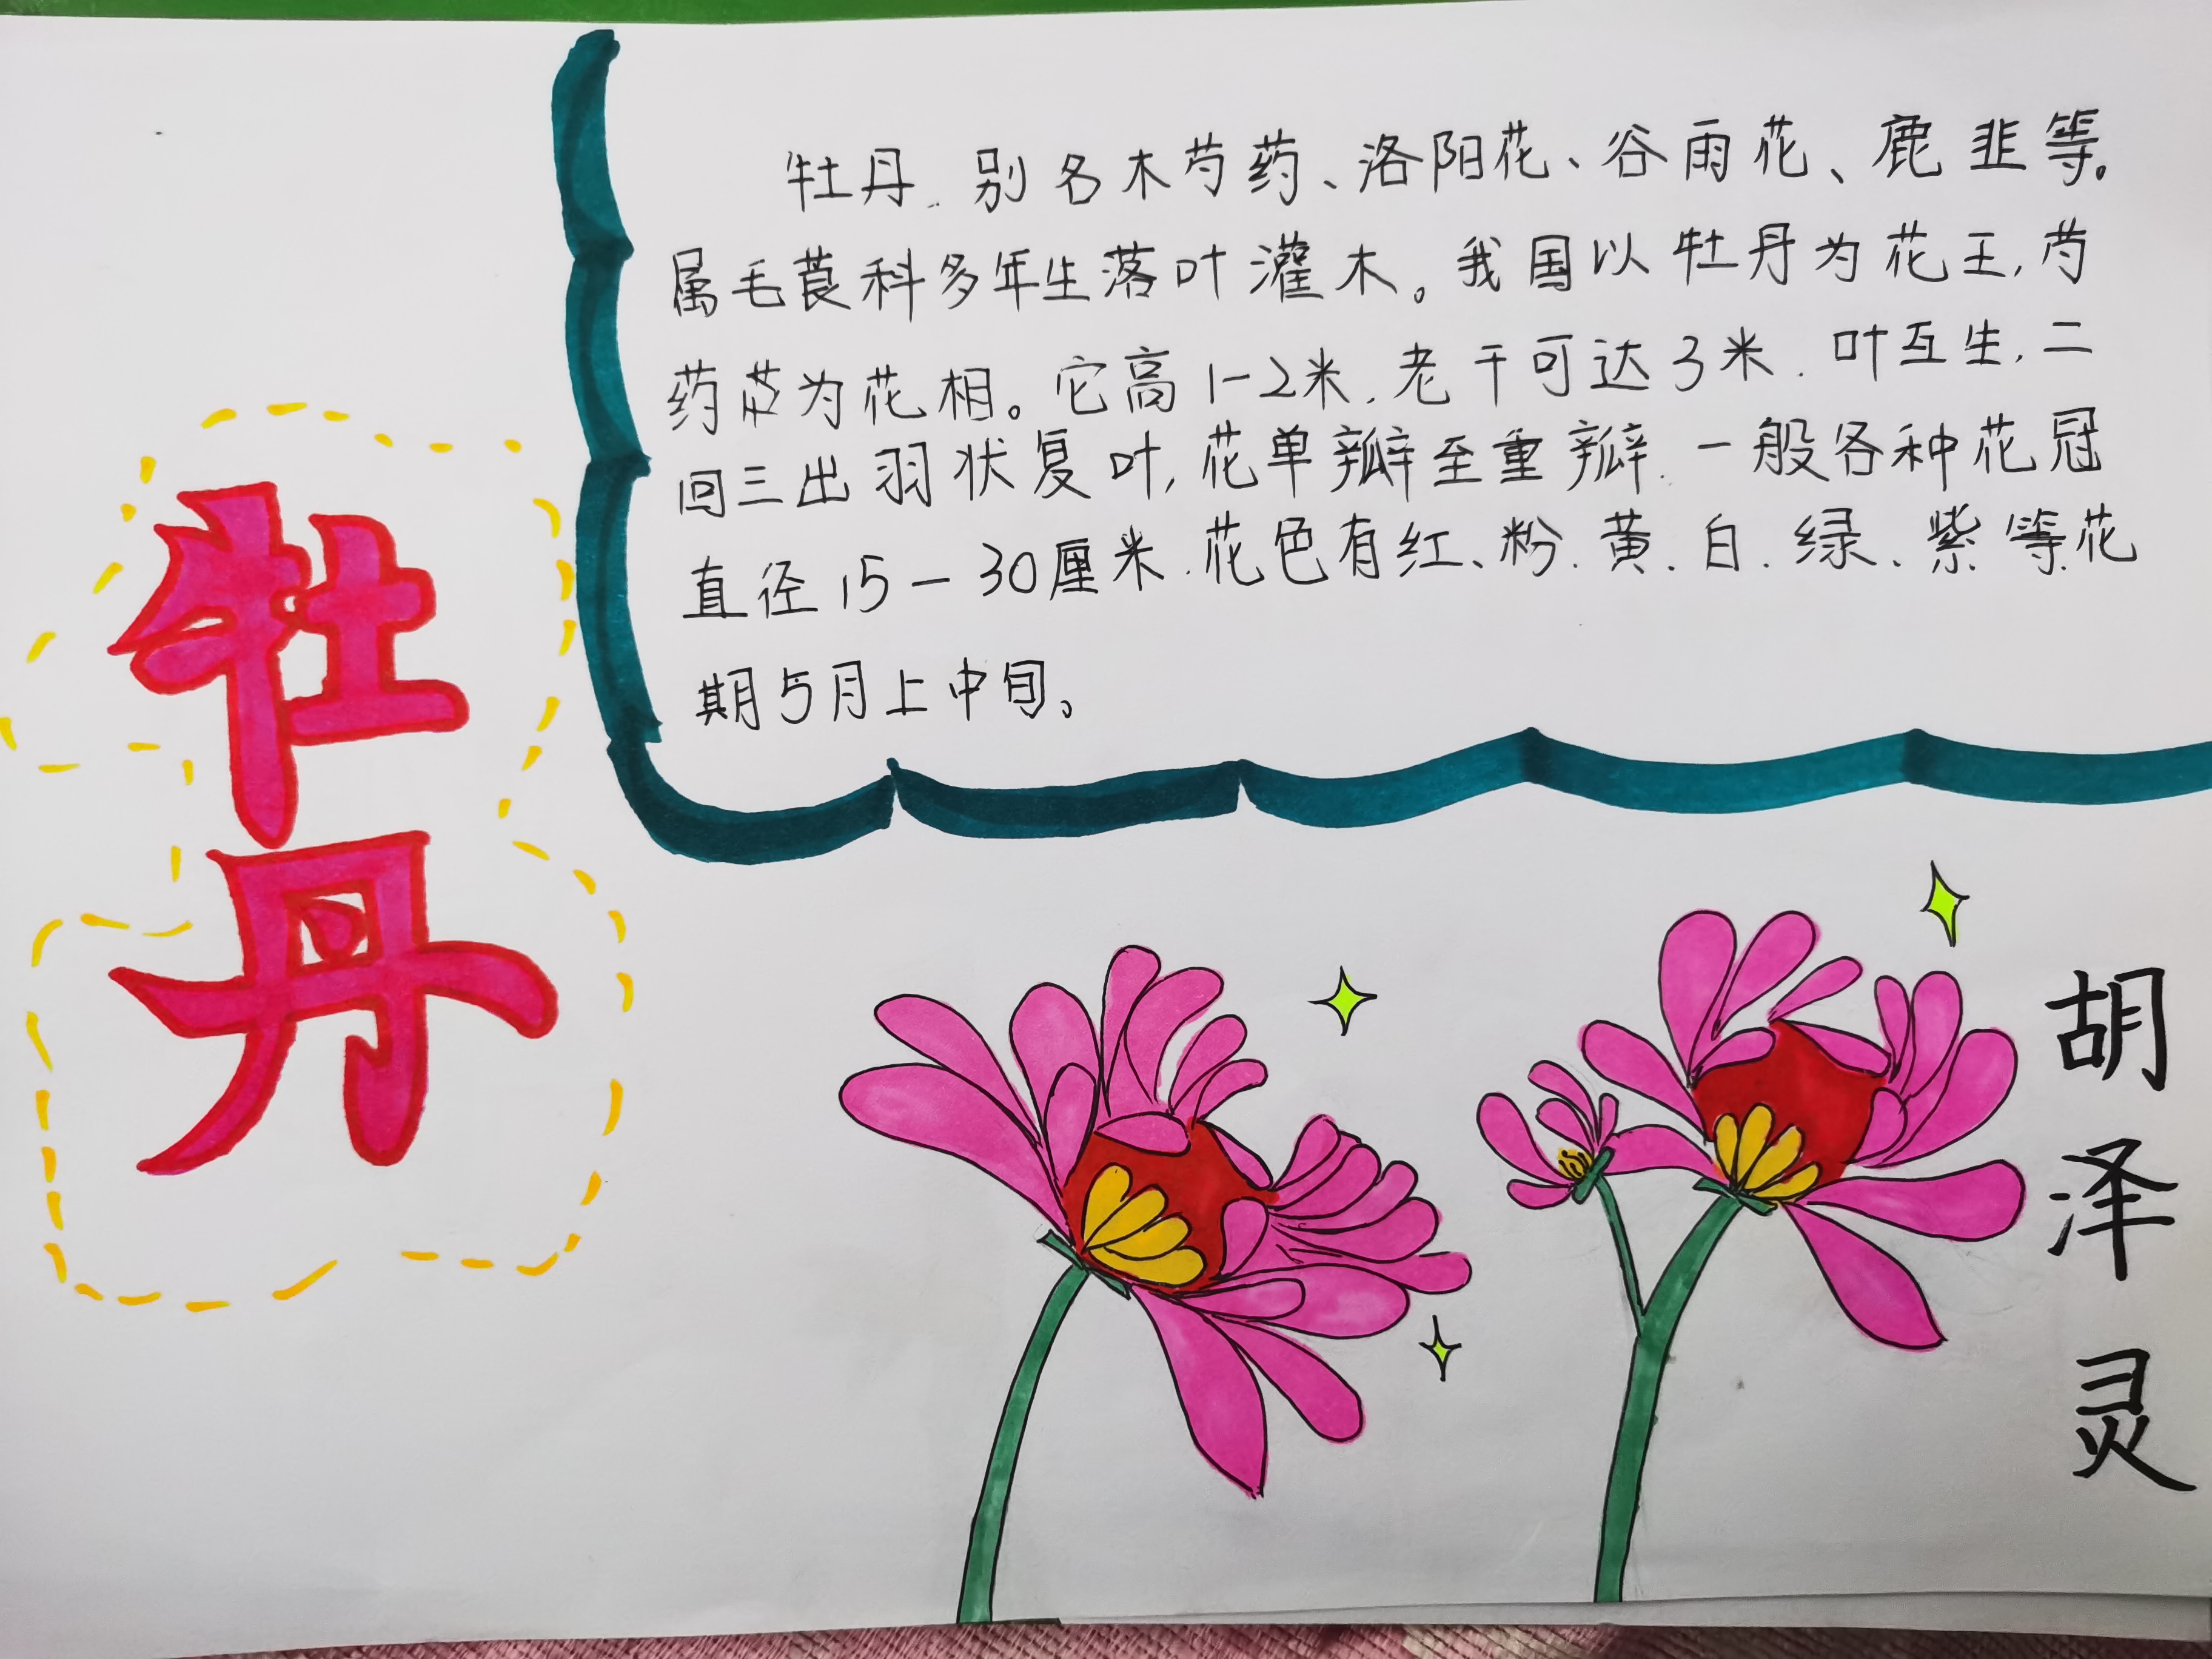 牡丹
牡丹.别名木芍药、洛阳花、谷雨花、鹿韭等。
属毛茛科多年生落叶灌木。我国以牡丹为花王,芍
药为花相。它高1-2米.老干可达3米.叶互生,二
回三出羽状复叶,花单瓣至重瓣.一般各种花冠
直径15-30厘米.花色有红、粉.黄.白.绿、紫等.花
期5月上中旬。
胡泽灵